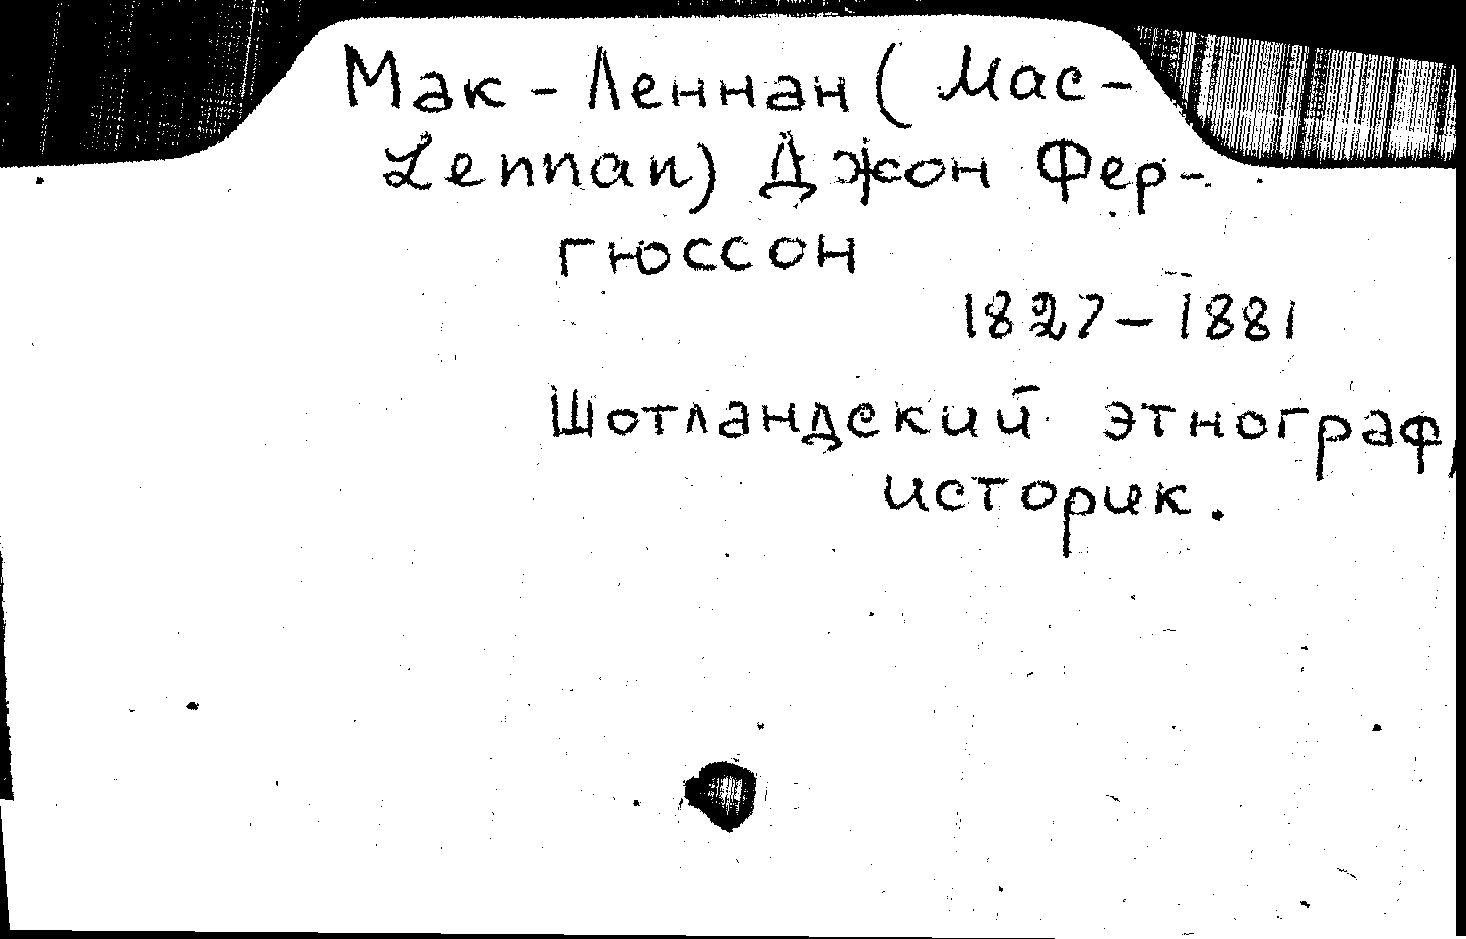 Мак-Леннан (Mac-
Lennan) Джон Фер-
гюссон
1827-1881
Шотландский этнограф,
историк.